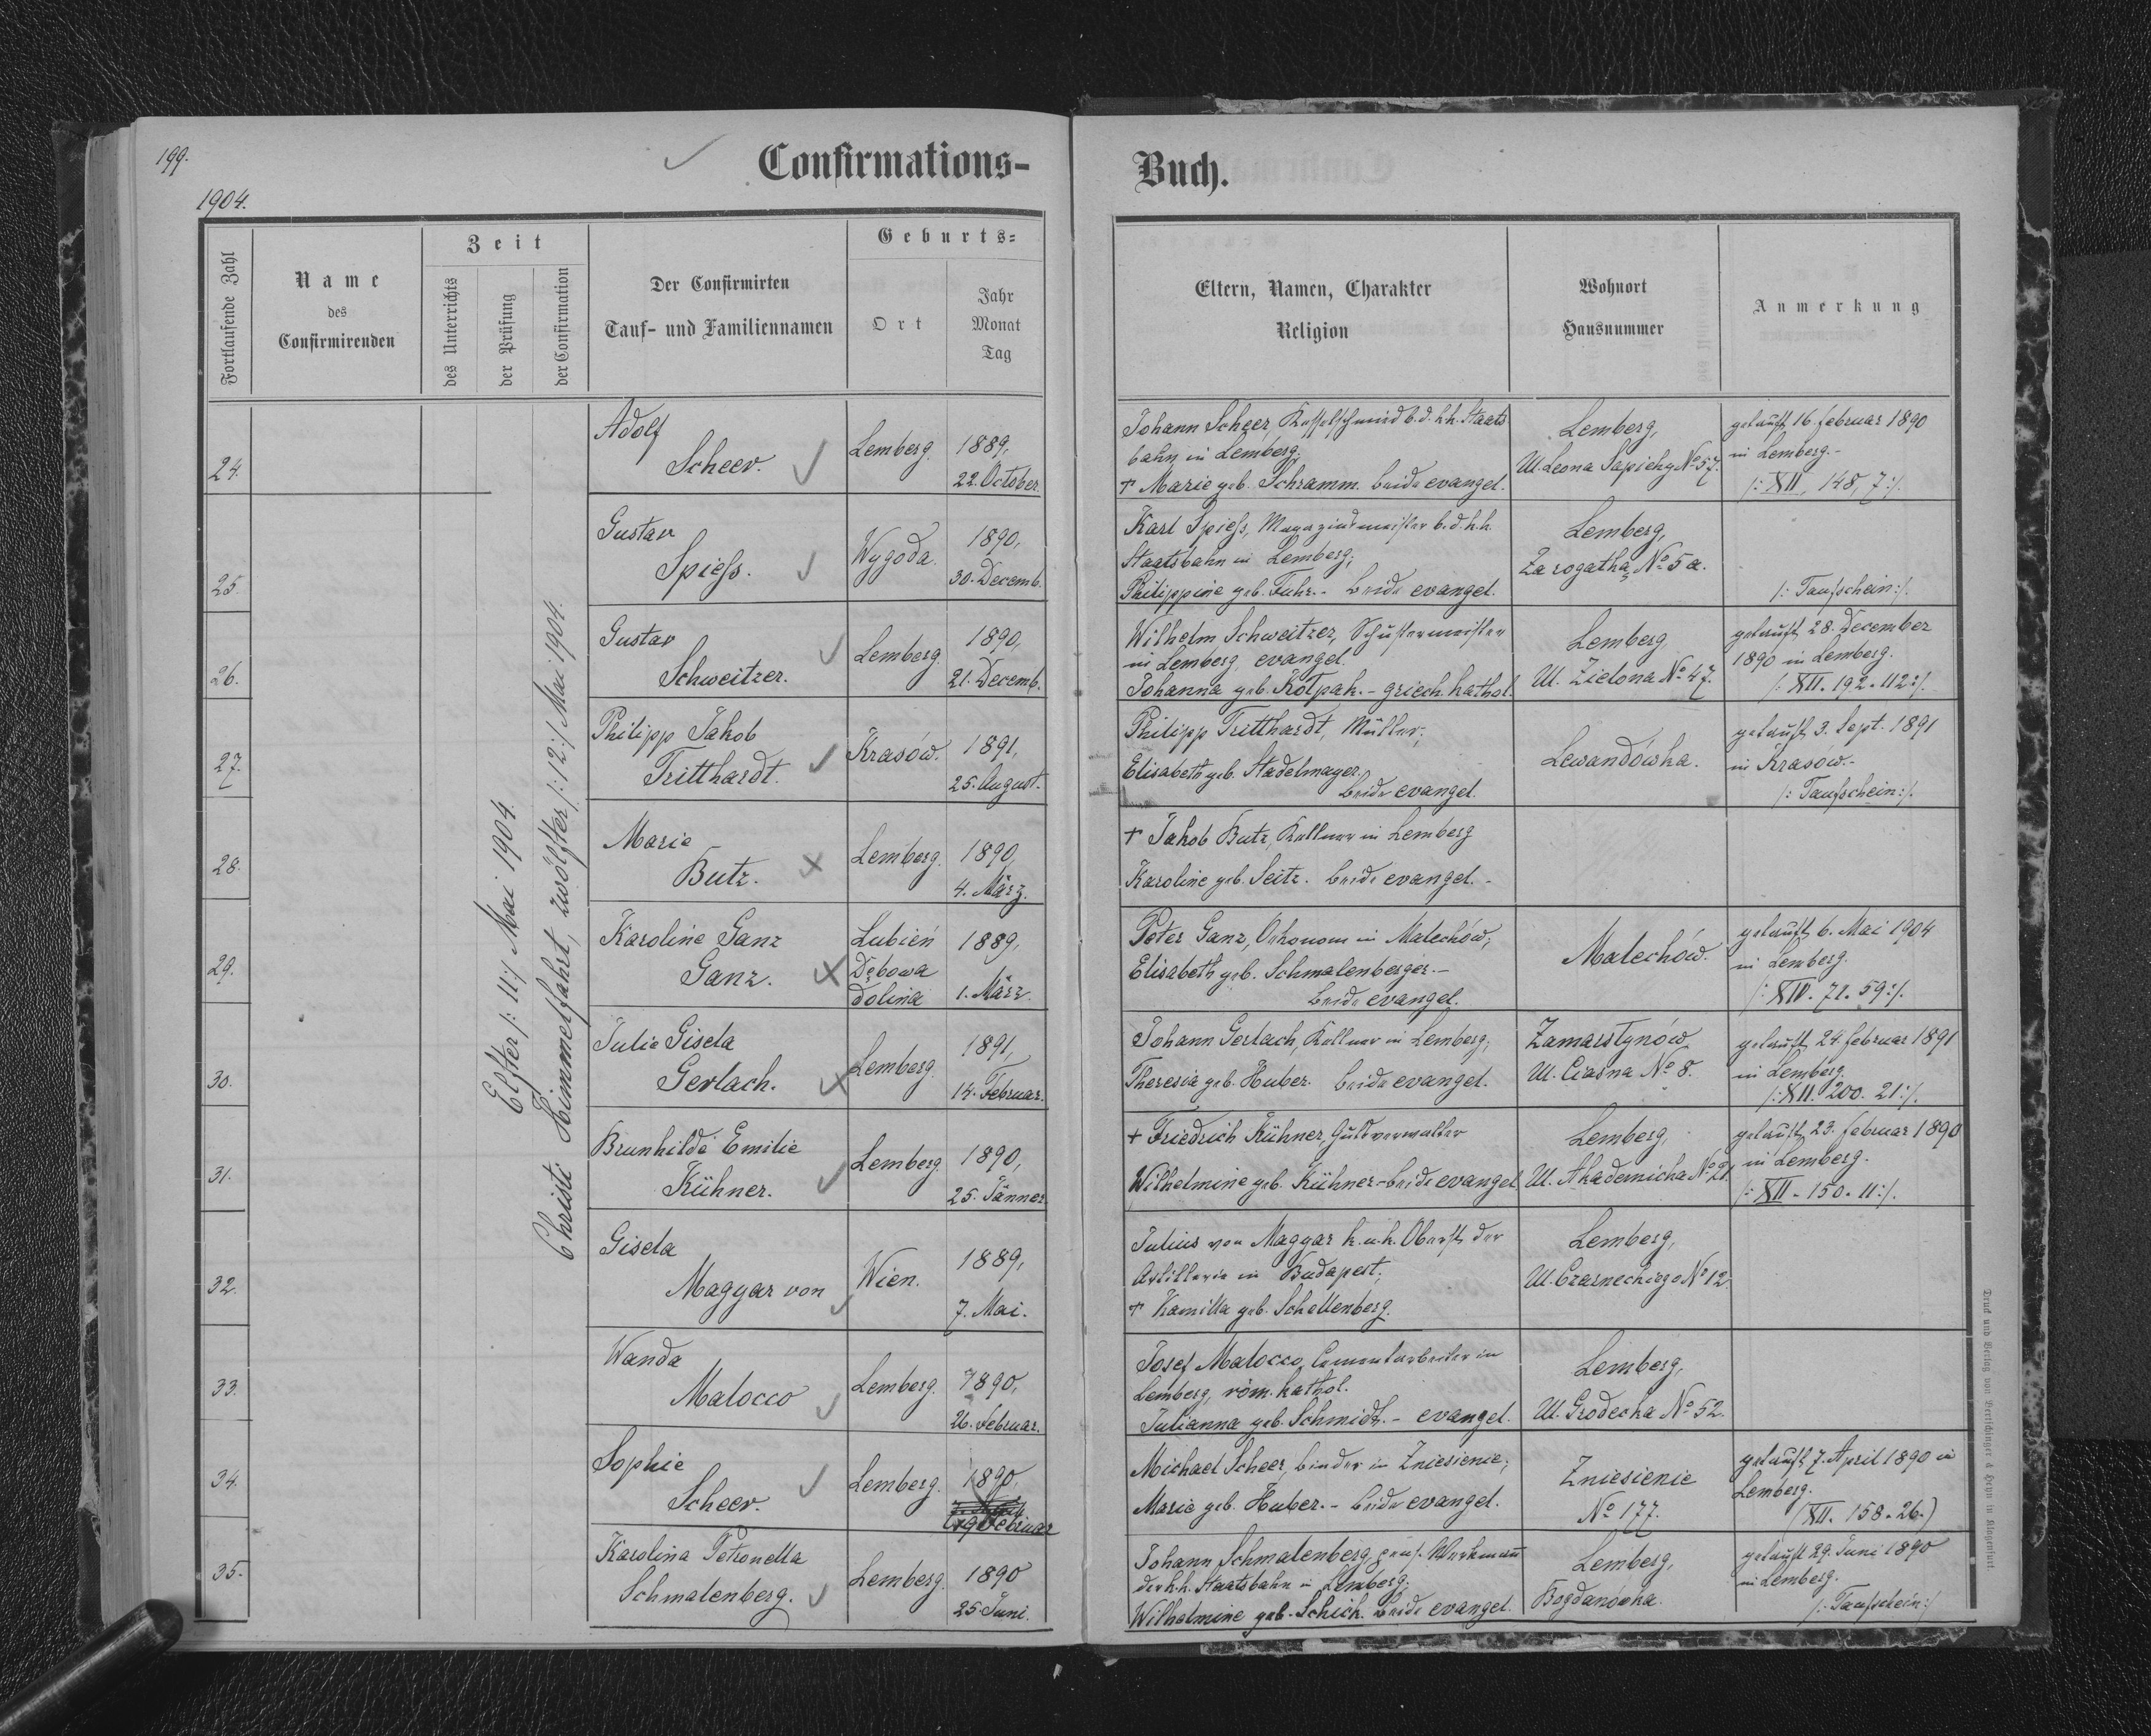 199.
Confirmations-
Buch.
1904.
Fortlaufende Zahl
Name
des
Confirmirenden
Zeit
des Unterrichts
der Prüfung
der Confirmation
Der Confirmirten
Tauf- und Familiennamen
Geburts-
Ort
Jahr
Monat
Tag
Eltern, Namen, Charakter
Religion
Wohnort
Hausnummer
Anmerkung
Elfter /: 11:/ Mai 1904.
Christi Himmelfahrt, zwölfter /: 12:/ Mai 1904.
24.
Adolf
Scheer.
Lemberg.
1889,
22. October.
Johann Scheer, Kesselschmied b. d. k. k. Staats
bahn in Lemberg;
† Marie geb. Schramm. beide evangel.
Lemberg,
Ul. Leona Sapiehy No 57.
getauft 16. Februar 1890
in Lemberg.-
/: XII, 148, 7:/.
25.
Gustav
Spiess.
Wygoda.
1890,
30. Decemb.
Karl Spiess, Magazinsmeister b. d. k. k.
Staatsbahn in Lemberg;
Philippine geb. Fuhr.- beide evangel.
Lemberg,
Za rogatką No 5a.
/: Taufschein:/.
26.
Gustav
Schweitzer.
Lemberg.
1890,
21. Decemb.
Wilhelm Schweitzer, Schustermeister
in Lemberg evangel.
Johanna geb. Kołpak.- griech. kathol.
Lemberg
Ul. Zielona No 47.
getauft 28. December
1890 in Lemberg.
/: XII. 192. 112:/.
27.
Philipp Jakob
Tritthardt.
Krasów.
1891,
25. August.
Philipp Tritthardt, Müller;
Elisabeth geb. Stadelmayer.
beide evangel.
Lewandówka.
getauft 3. Sept. 1891
in Krasów.-
/: Taufschein:/.
28.
Marie
Butz.
Lemberg.
1890,
4. März.
† Jakob Butz, Kellner in Lemberg
Karoline geb. Seitz. beide evangel.-
29.
Karoline Ganz
Ganz.
Lubień
Dębowa
dolina
1889,
1. März.
Peter Ganz, Oekonom in Malechów;
Elisabeth geb. Schmalenberger.-
beide evangel.
Malechów.
getauft 6. Mai 1904
in Lemberg.
/: XIV. 71. 59:/.
30.
Julie Gisela
Gerlach.
Lemberg.
1891,
14. Februar.
Johann Gerlach, Kellner in Lemberg;
Theresia geb. Huber. beide evangel.
Zamarstynów
Ul. Ciasna No 8.
getauft 24. Februar 1891
in Lemberg.
/: XII. 200. 21:/.
31.
Brunhilde Emilie
Kühner.
Lemberg
1890,
25. Jänner
† Friedrich Kühner, Gutsverwalter
Wilhelmine geb. Kühner - beide evangel.
Lemberg,
Ul. Akademicka No 21.
getauft 23. Februar 1890
in Lemberg.
/: XII. 150. 11:/.
32.
Gisela
Magyar von
Wien.
1889,
7. Mai.
Julius von Magyar k. u. k. Oberst der
Artillerie in Budapest;
† Kamilla geb. Schellenberg.
Lemberg,
Ul. Czarneckiego No 12.
33.
Wanda
Malocco
Lemberg.
1890,
26. Februar.
Josef Malocco, Cementarbeiter in
Lemberg, röm. kathol.
Julianna geb. Schmidt.- evangel.
Lemberg,
Ul. Grodecka No 52.
34.
Sophie
Scheer.
Lemberg.
1890,
Februar
Michael Scheer, Binder in Zniesienie;
Marie geb. Huber.- beide evangel.
Zniesienie
No 177.
getauft 7. April 1890 in
Lemberg.
(XII. 158. 26.)
35.
Karolina Petronella
Schmalenberg.
Lemberg.
1890
25. Juni.
Johann Schmalenberg, pens. Werkmann
der k. k. Staatsbahn in Lemberg;
Wilhelmine geb. Schick. beide evangel.
Lemberg,
Bogdanówka.
getauft 29. Juni 1890
in Lemberg.
/: Taufschein:/